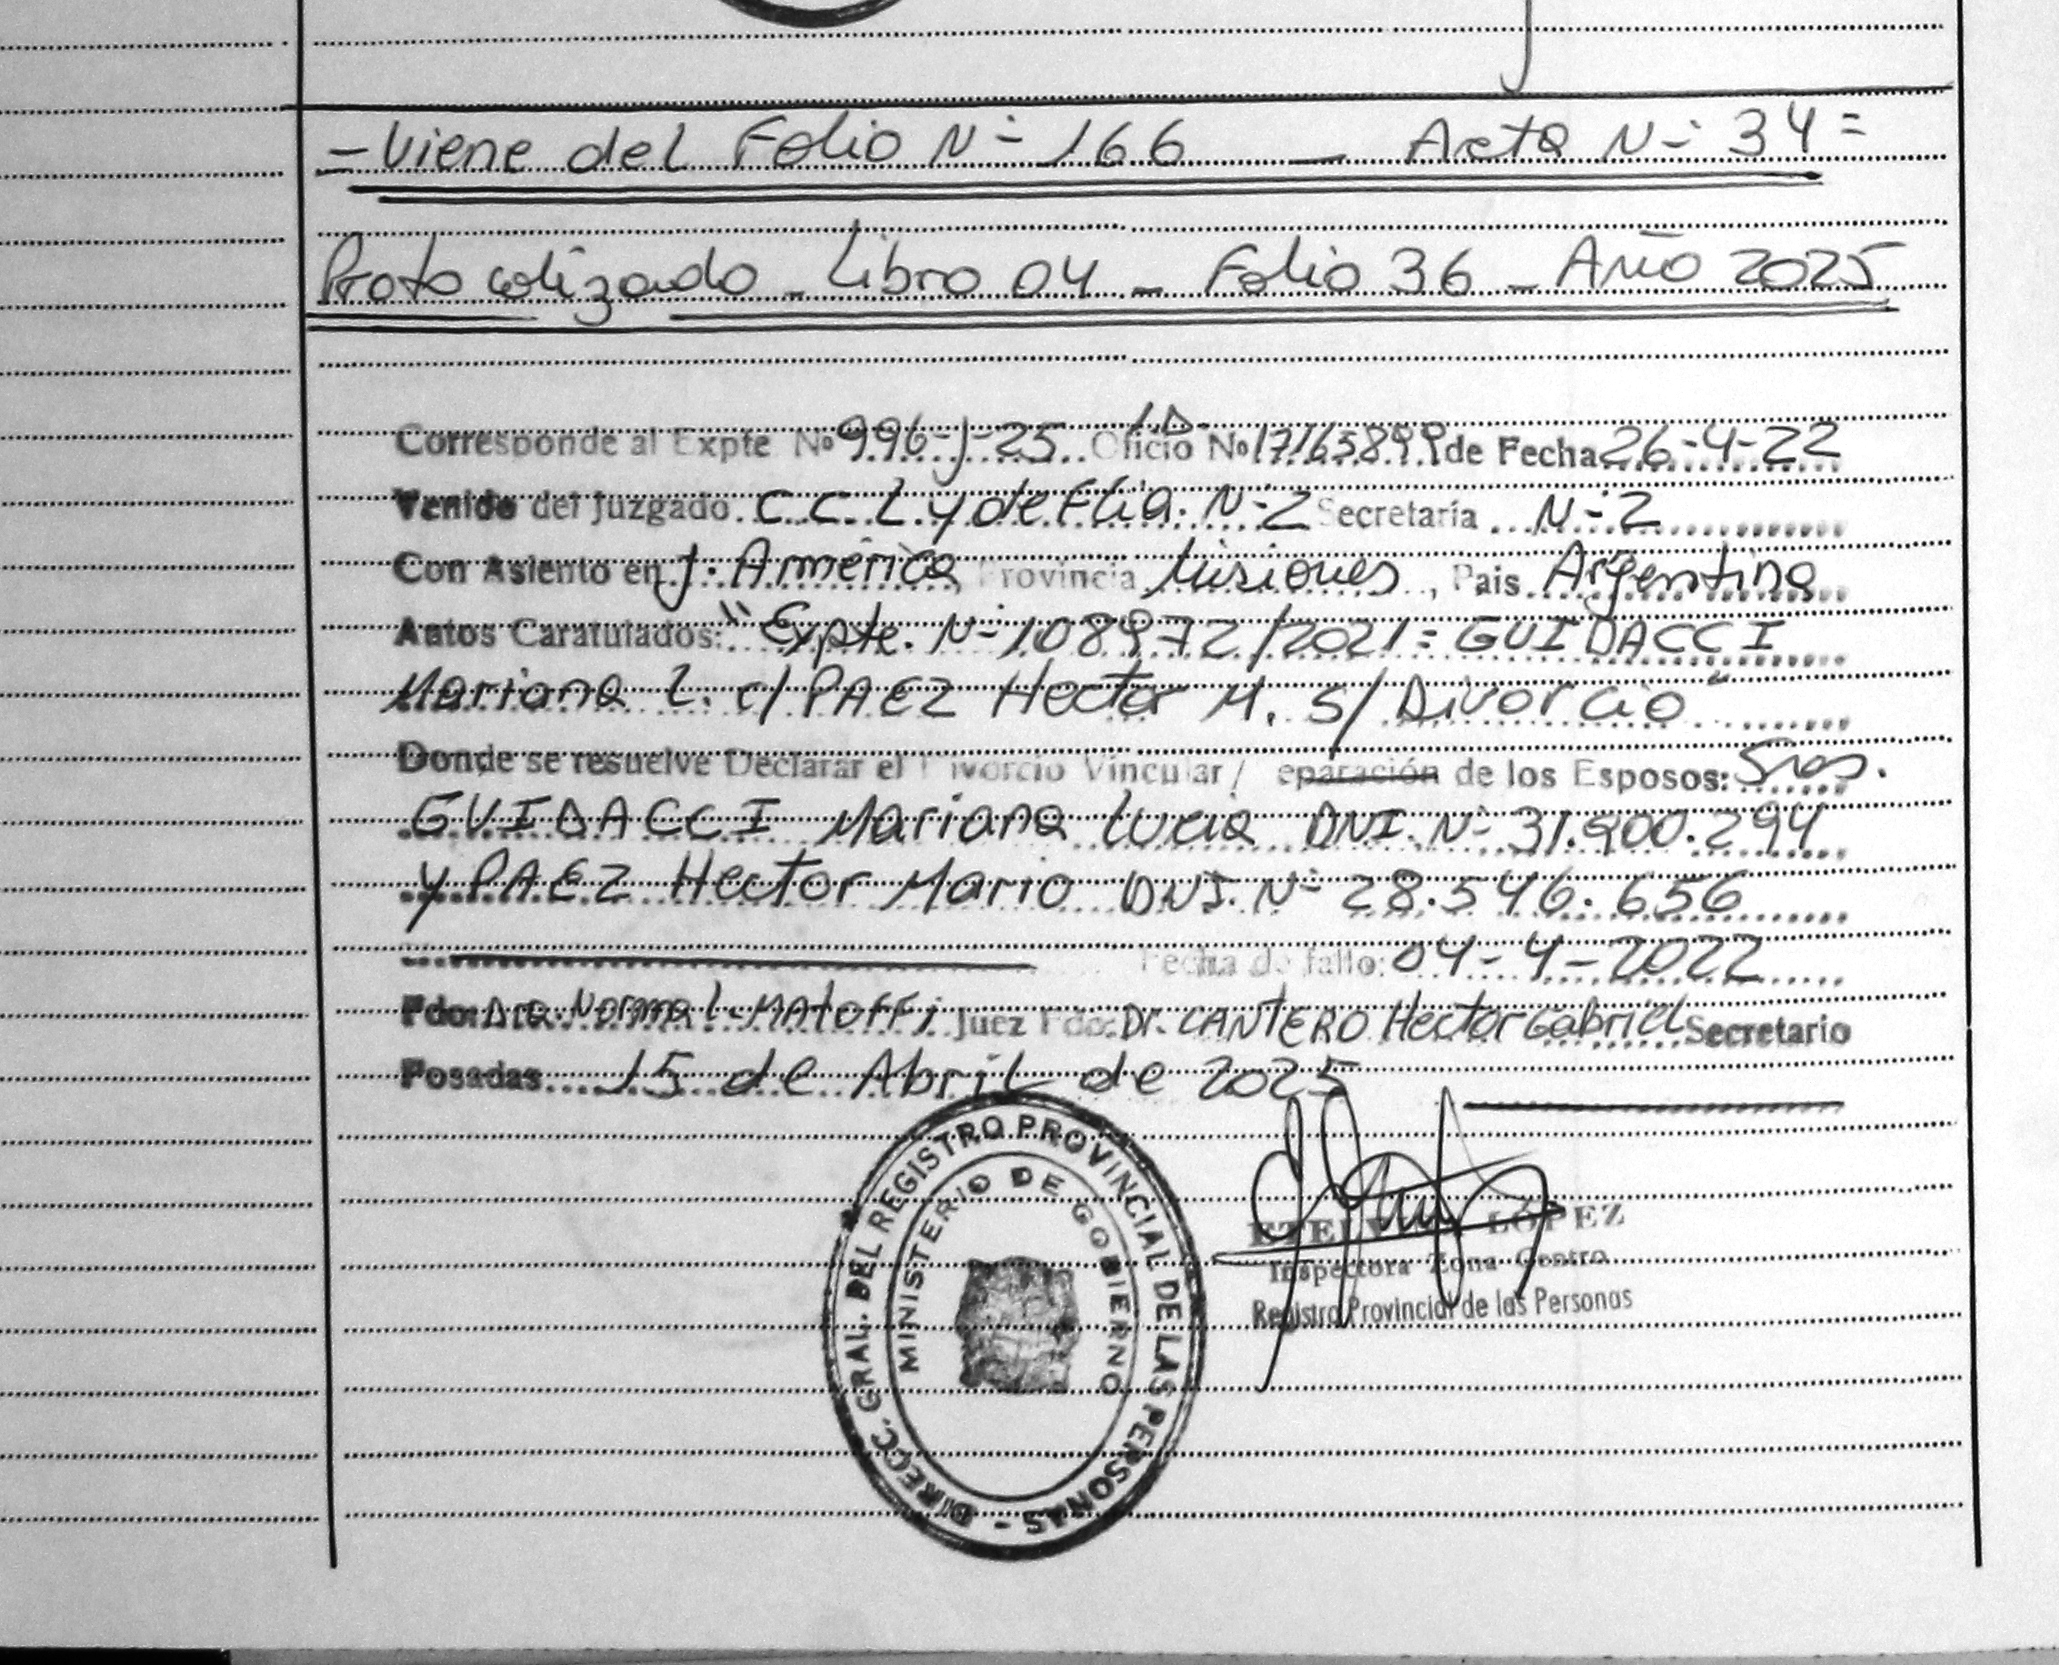 = Viene del Folio N° 166 — Acta N° 34 =
Protocolizado - Libro 04 - Folio 36 - Año 2025
Corresponde al Expte. Nº 996-J-25 Oficio ID Nº 17165899 de Fecha 26-4-22
Venido del Juzgado C.C.L. y de Flia. N°2 Secretaría N°2
Con Asiento en J. América, Provincia Misiones, País Argentina
Autos Caratulados: "Expte. N° 108972/2021 = GUIDACCI
Mariana L. c/ PAEZ Hector M. S/ Divorcio"
Donde se resuelve Declarar el Divorcio Vincular/ eparación de los Esposos: Sres.
GUIDACCI Mariana Lucia DNI. N° 31.900.294
y PAEZ Hector Mario DNI. N° 28.546.656
Fecha de fallo: 04-4-2022
Fdo: Dra. Norma L. MAtoFFi Juez Fdo: Dr. CANTERO Hector Gabriel Secretario
Posadas 15 de Abril de 2025
DIRECC. GRAL. DEL REGISTRO PROVINCIAL DE LAS PERSONAS -
MINISTERIO DE GOBIERNO
LÓPEZ
Inspectora Zona Centro
Registro Provincial de las Personas